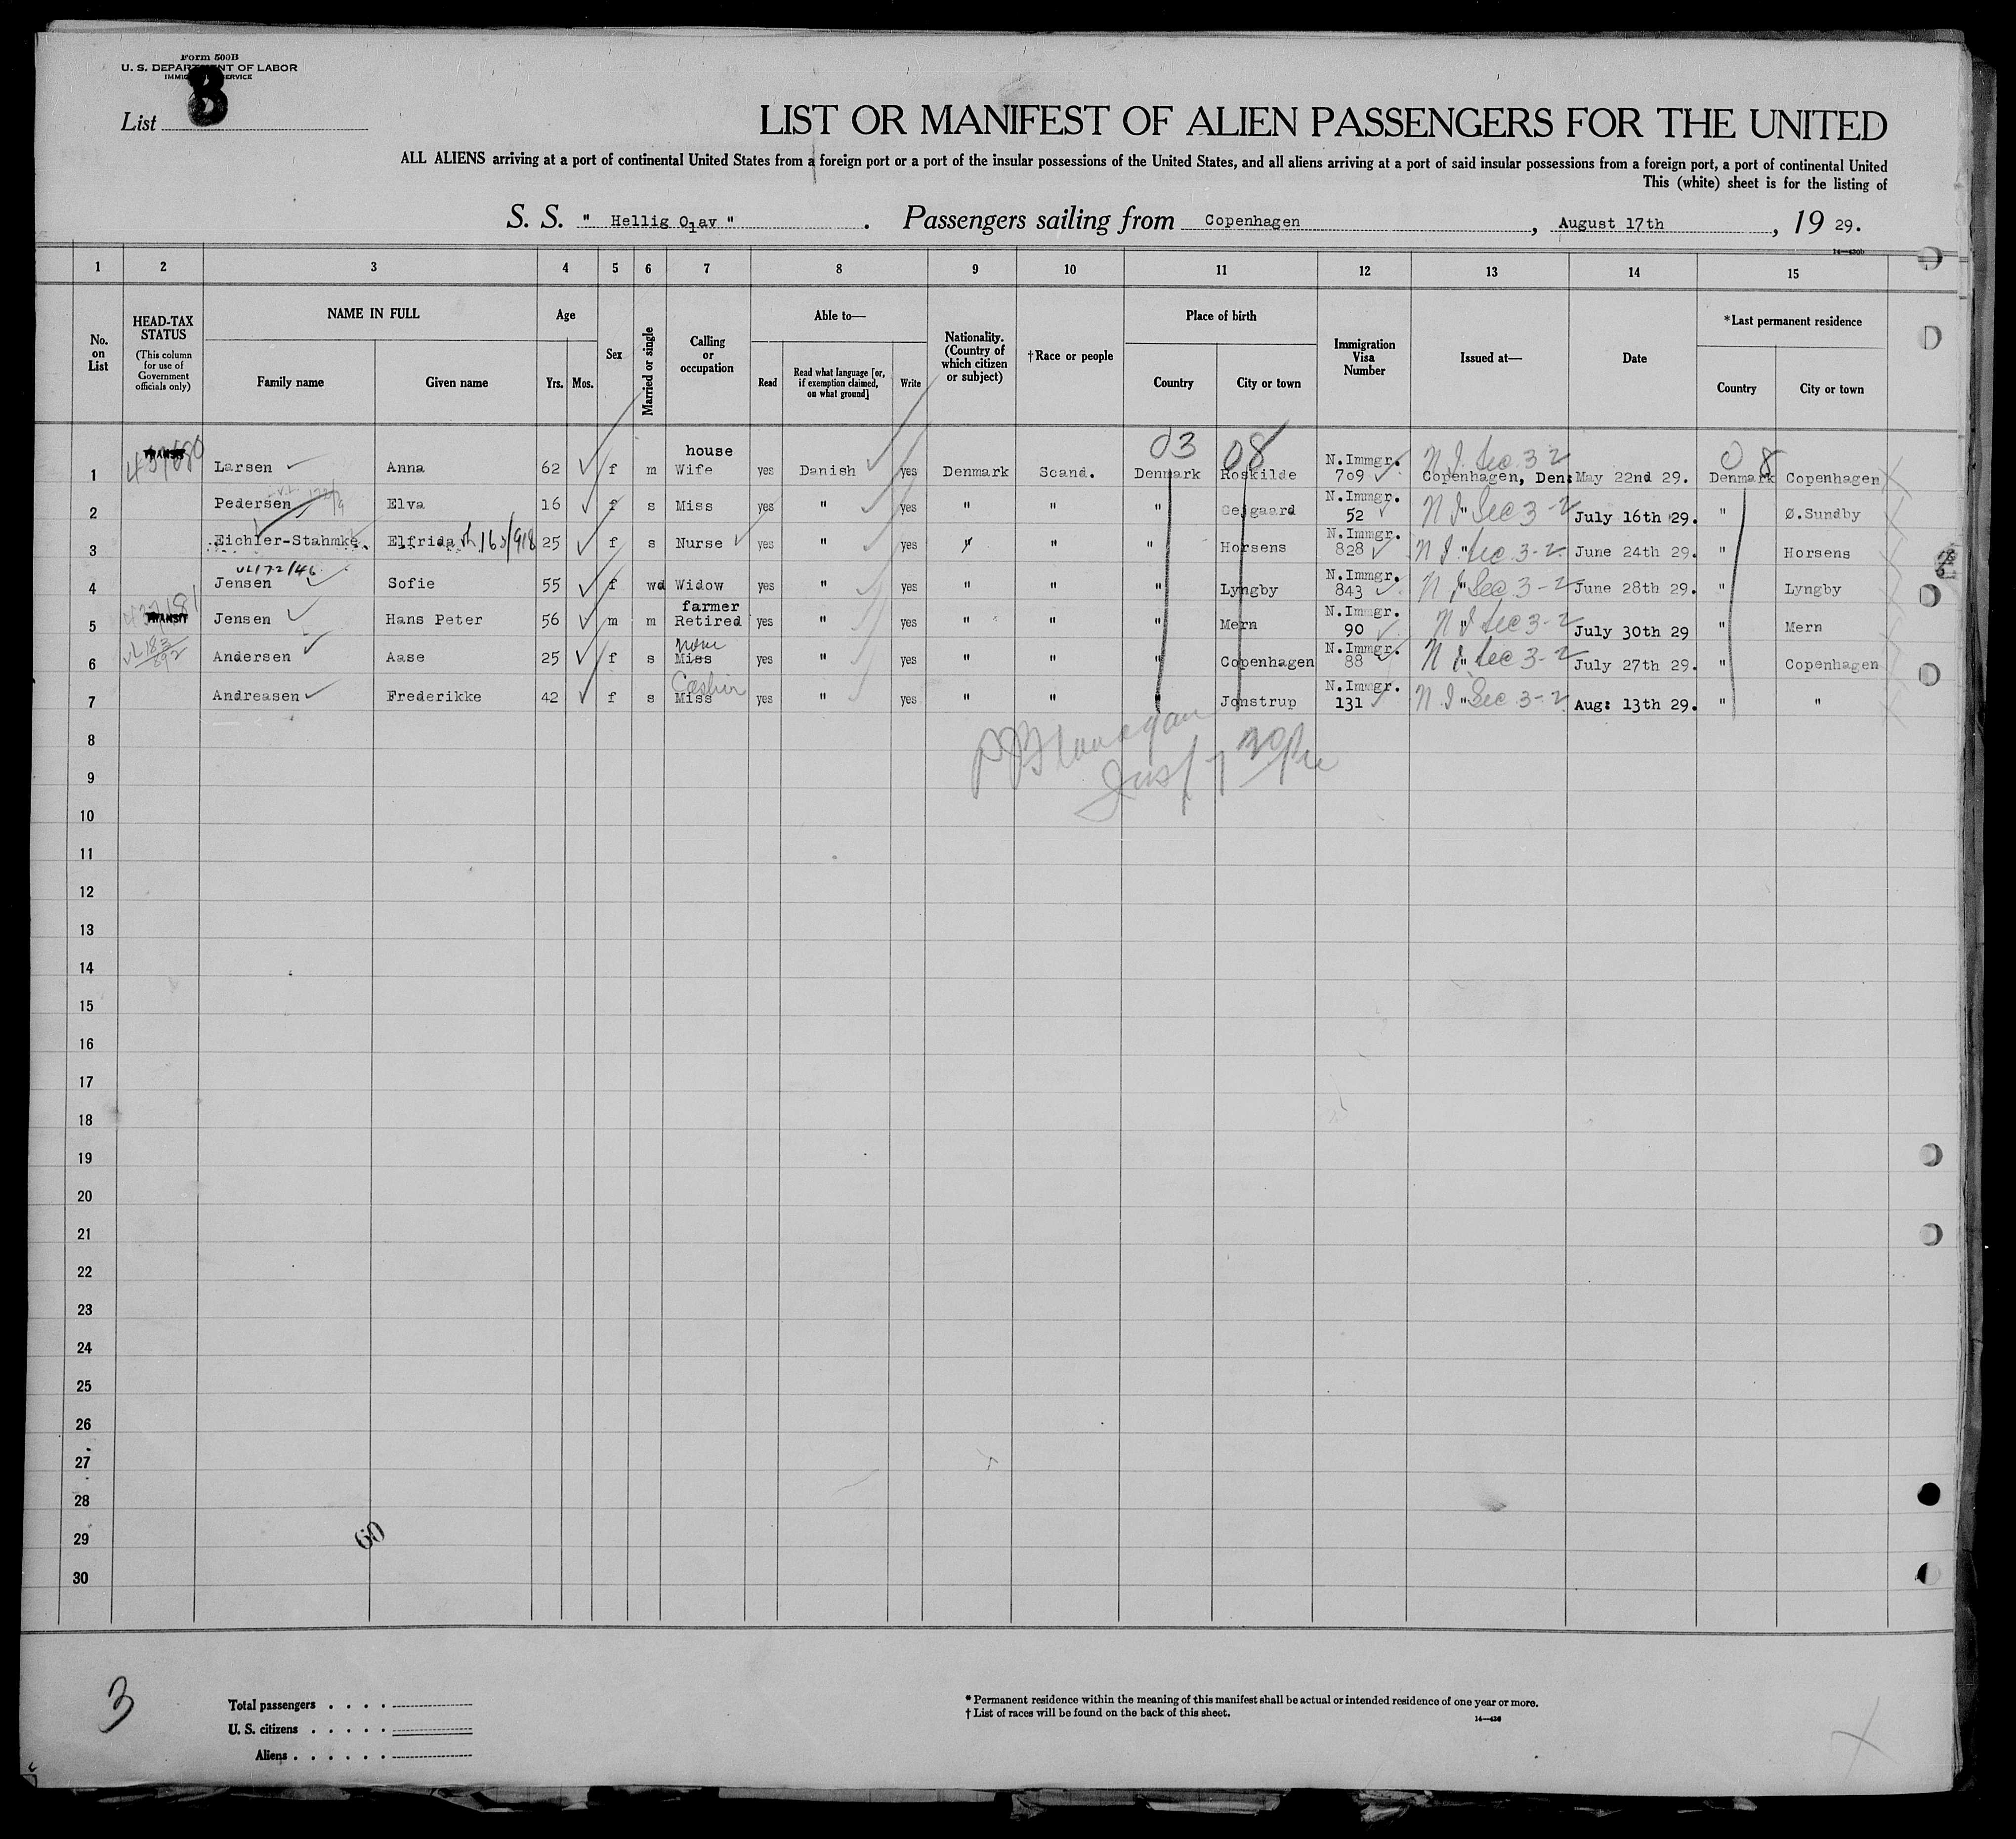 Form 500B
U. S. DEPARTMENT OF LABOR
IMMIGRATION SERVICE
List 3
LIST OR MANIFEST OF ALIEN PASSENGERS FOR THE UNITED
ALL ALIENS arriving at a port of continental United States from a foreign port or a port of the insular possessions of the United States, and all aliens arriving at a port of said insular possessions from a foreign port, a port of continental United
This (white) sheet is for the listing of
S. S. " Hellig Olav " . Passengers sailing from Copenhagen , August 17th , 19 29.
14—430b
1 2 3 4 5 6 7 8 9 10 11 12 13 14 15
No. on List
HEAD-TAX STATUS
(This column for use of Government officials only)
NAME IN FULL
Family name Given name
Age
Yrs. Mos.
Sex
Married or single
Calling or occupation
Able to—
Read Read what language [or, if exemption claimed, on what ground] Write
Nationality. (Country of which citizen or subject)
†Race or people
Place of birth
Country City or town
Immigration Visa Number
Issued at—
Date
*Last permanent residence
Country City or town
03 08 08
1 TRANSIT Larsen Anna 62 f m house Wife yes Danish yes Denmark Scand. Denmark Roskilde N.Immgr. 709 N I Sec 3-2 Copenhagen, Den: May 22nd 29. Denmark Copenhagen
2 Pedersen Elva 16 f s Miss yes " yes " " " N.Immgr. 52 N I " Sec 3-2 July 16th 29. " Ø.Sundby
3 Eichler-Stahmke. Elfrida 163/918 25 f s Nurse yes " yes " " " Horsens N.Immgr. 828 N I " Sec 3-2 June 24th 29. " Horsens
VL172/46
4 Jensen Sofie 55 f wd Widow yes " yes " " " Lyngby N.Immgr. 843 N I " Sec 3-2 June 28th 29. " Lyngby
5 TRANSIT Jensen Hans Peter 56 m m farmer Retired yes " yes " " " Mern N.Immgr. 90 N I " Sec 3-2 July 30th 29 " Mern
6 VL 183/892 Andersen Aase 25 f s None Miss yes " yes " " " Copenhagen N.Immgr. 88 N I " Sec 3-2 July 27th 29. " Copenhagen
7 Andreasen Frederikke 42 f s Cashier Miss yes " yes " " " Jonstrup N.Immgr. 131 N I " Sec 3-2 Aug: 13th 29. " "
8
9
10
11
12
13
14
15
16
17
18
19
20
21
22
23
24
25
26
27
28
29
30
60
3
Total passengers . . . .
U. S. citizens . . . . .
Aliens . . . . . .
* Permanent residence within the meaning of this manifest shall be actual or intended residence of one year or more.
† List of races will be found on the back of this sheet.
14—430